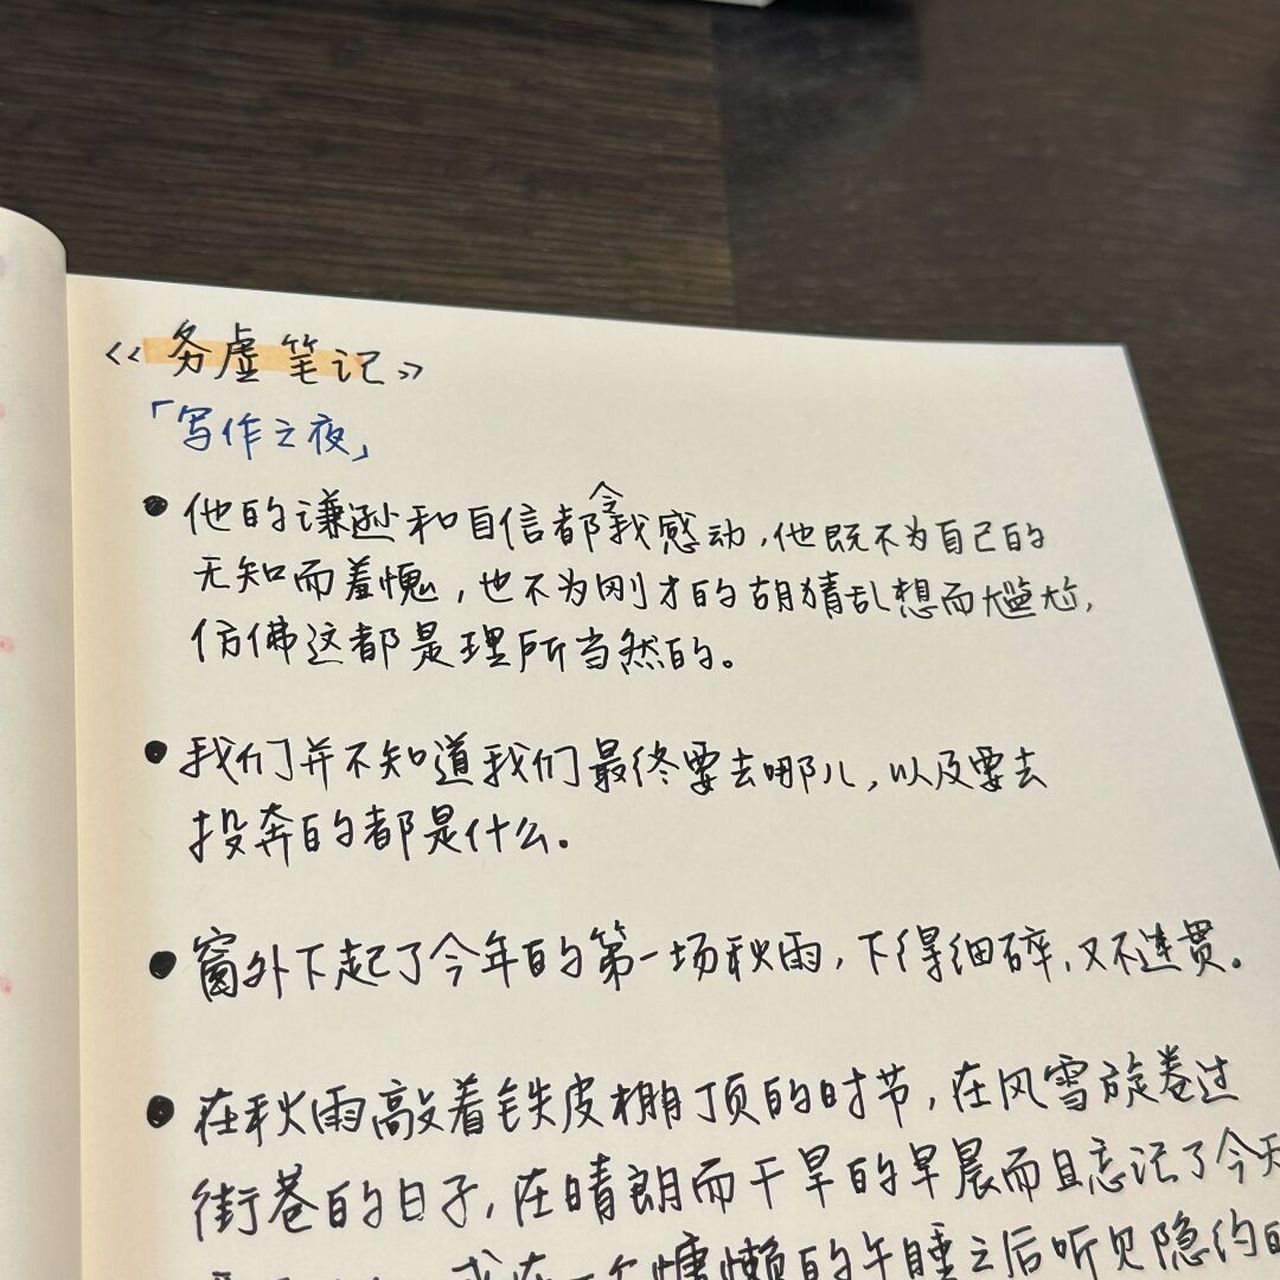 《务虚笔记》
「写作之夜」
• 他的谦逊和自信都令我感动,他既不为自己的
无知而羞愧,也不为刚才的胡猜乱想而尴尬,
仿佛这都是理所当然的。
• 我们并不知道我们最终要去哪儿,以及要去
投奔的都是什么。
• 窗外下起了今年的第一场秋雨,下得细碎,又不连贯。
• 在秋雨敲着铁皮棚顶的时节,在风雪旋卷过
街巷的日子,在晴朗而干旱的早晨而且忘记了今天
或在一个慵懒的午睡之后听见隐约的